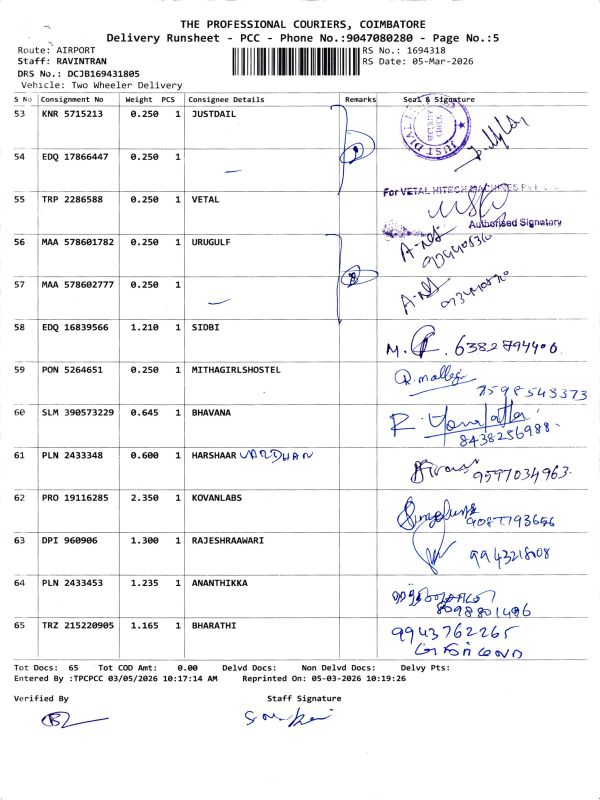 THE PROFESSIONAL COURIERS, COIMBATORE
Delivery Runsheet - PCC - Phone No.:9047080280 - Page No.:5
Route: AIRPORT RS No.: 1694318
Staff: RAVINTRAN RS Date: 05-Mar-2026
DRS No.: DCJB169431805
Vehicle: Two Wheeler Delivery
S No Consignment No Weight PCS Consignee Details Remarks Seal & Signature
53 KNR 5715213 0.250 1 JUSTDAIL
JUST DIAL
SECURITY CHECK
54 EDQ 17866447 0.250 1 —
For VETAL HITECH MACHINES PVT
55 TRP 2286588 0.250 1 VETAL
Authorised Signatory
56 MAA 578601782 0.250 1 URUGULF
57 MAA 578602777 0.250 1 —
58 EDQ 16839566 1.210 1 SIDBI
6382794406
59 PON 5264651 0.250 1 MITHAGIRLSHOSTEL
7598543373
60 SLM 390573229 0.645 1 BHAVANA
8438256988
61 PLN 2433348 0.600 1 HARSHAAR VARDHAN
9597034963
62 PRO 19116285 2.350 1 KOVANLABS
9087793656
63 DPI 960906 1.300 1 RAJESHRAAWARI
64 PLN 2433453 1.235 1 ANANTHIKKA
8098801496
65 TRZ 215220905 1.165 1 BHARATHI
9943762265
Tot Docs: 65 Tot COD Amt: 0.00 Delvd Docs: Non Delvd Docs: Delvy Pts:
Entered By :TPCPCC 03/05/2026 10:17:14 AM Reprinted On: 05-03-2026 10:19:26
Verified By Staff Signature